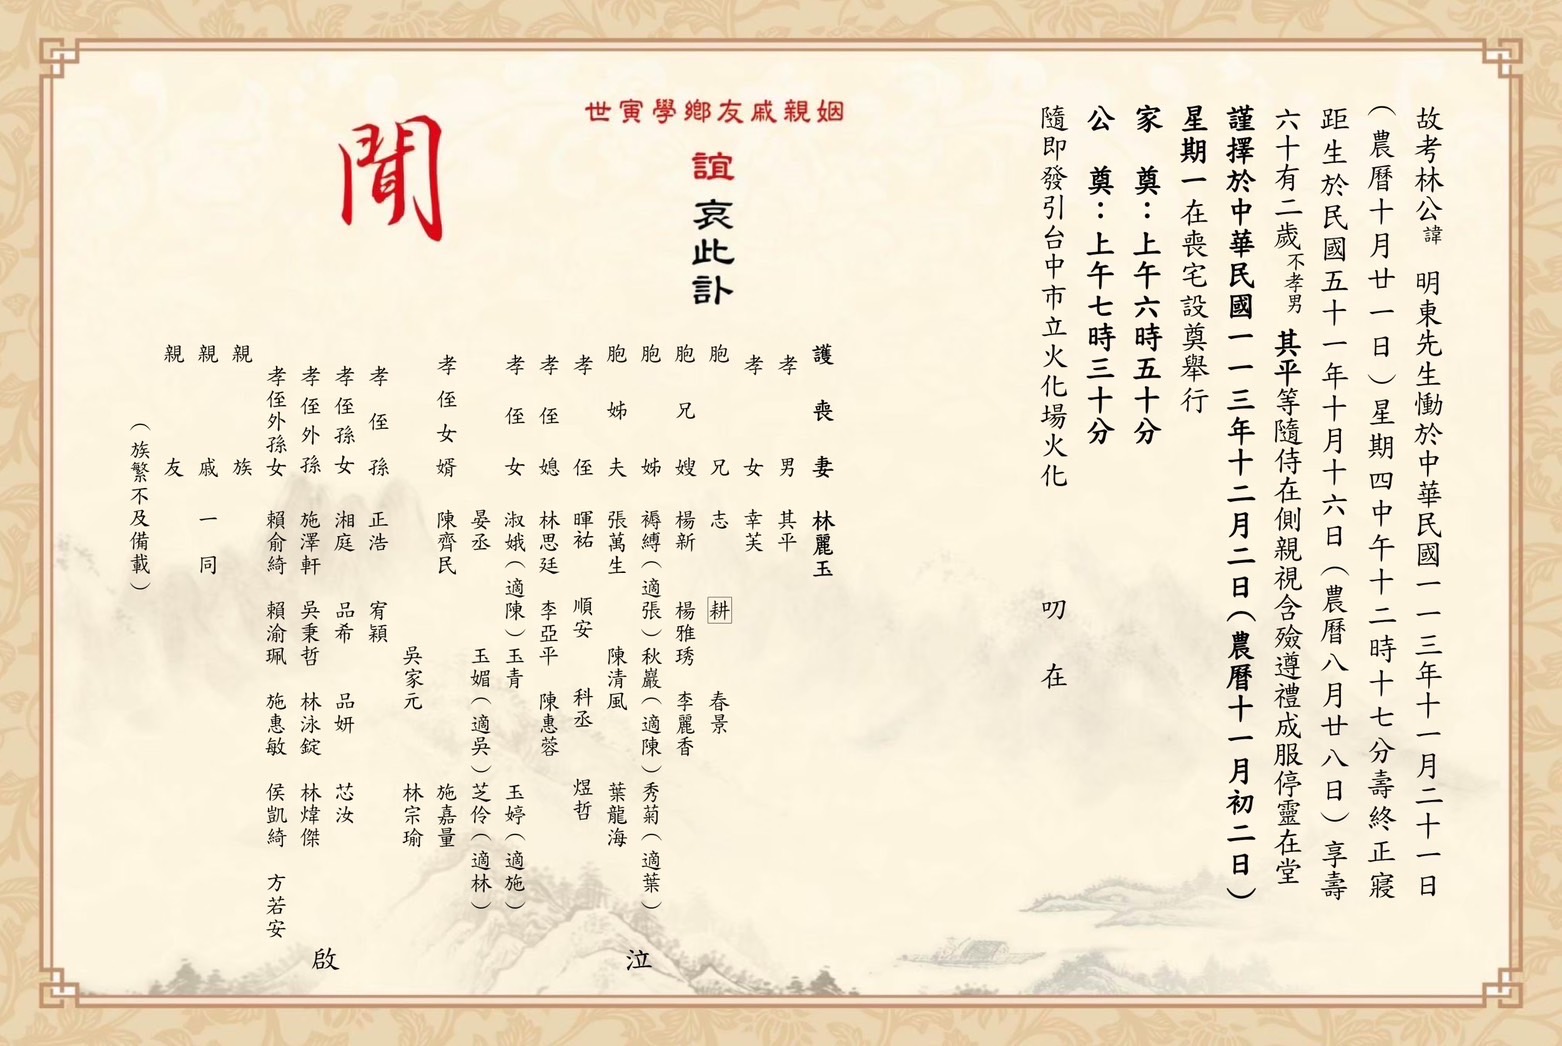 故考林公諱 明東先生慟於中華民國一一三年十一月二十一日
（農曆十月廿一日）星期四中午十二時十七分壽終正寢
距生於民國五十一年十月十六日（農曆八月廿八日）享壽
六十有二歲不孝男 其平等隨侍在側親視含殮遵禮成服停靈在堂
謹擇於中華民國一一三年十二月二日（農曆十一月初二日）
星期一在喪宅設奠舉行
家 奠：上午六時五十分
公 奠：上午七時三十分
隨即發引台中市立火化場火化 叨 在
世寅學鄉友戚親姻
誼 哀此訃
聞
護喪妻 林麗玉
孝男 其平
孝女 幸芙
胞兄 志 耕 春景
胞兄嫂 楊新 楊雅琇 李麗香
胞姊 褥縛（適張）秋巖（適陳）秀菊（適葉）
胞姊夫 張萬生 陳清風 葉龍海
孝侄 暉祐 順安 科丞 煜哲
孝侄媳 林思廷 李亞平 陳惠蓉
孝侄女 淑娥（適陳）玉青 玉婷（適施）
晏丞 玉媚（適吳）芝伶（適林）
孝侄女婿 陳齊民 施嘉量
吳家元 林宗瑜
孝侄孫 正浩 宥穎
孝侄孫女 湘庭 品希 品妍 芯汝
孝侄外孫 施澤軒 吳秉哲 林泳錠 林煒傑
孝侄外孫女 賴俞綺 賴渝珮 施惠敏 侯凱綺 方若安
親族
親戚 一同
親友
（族繁不及備載）
泣
啟